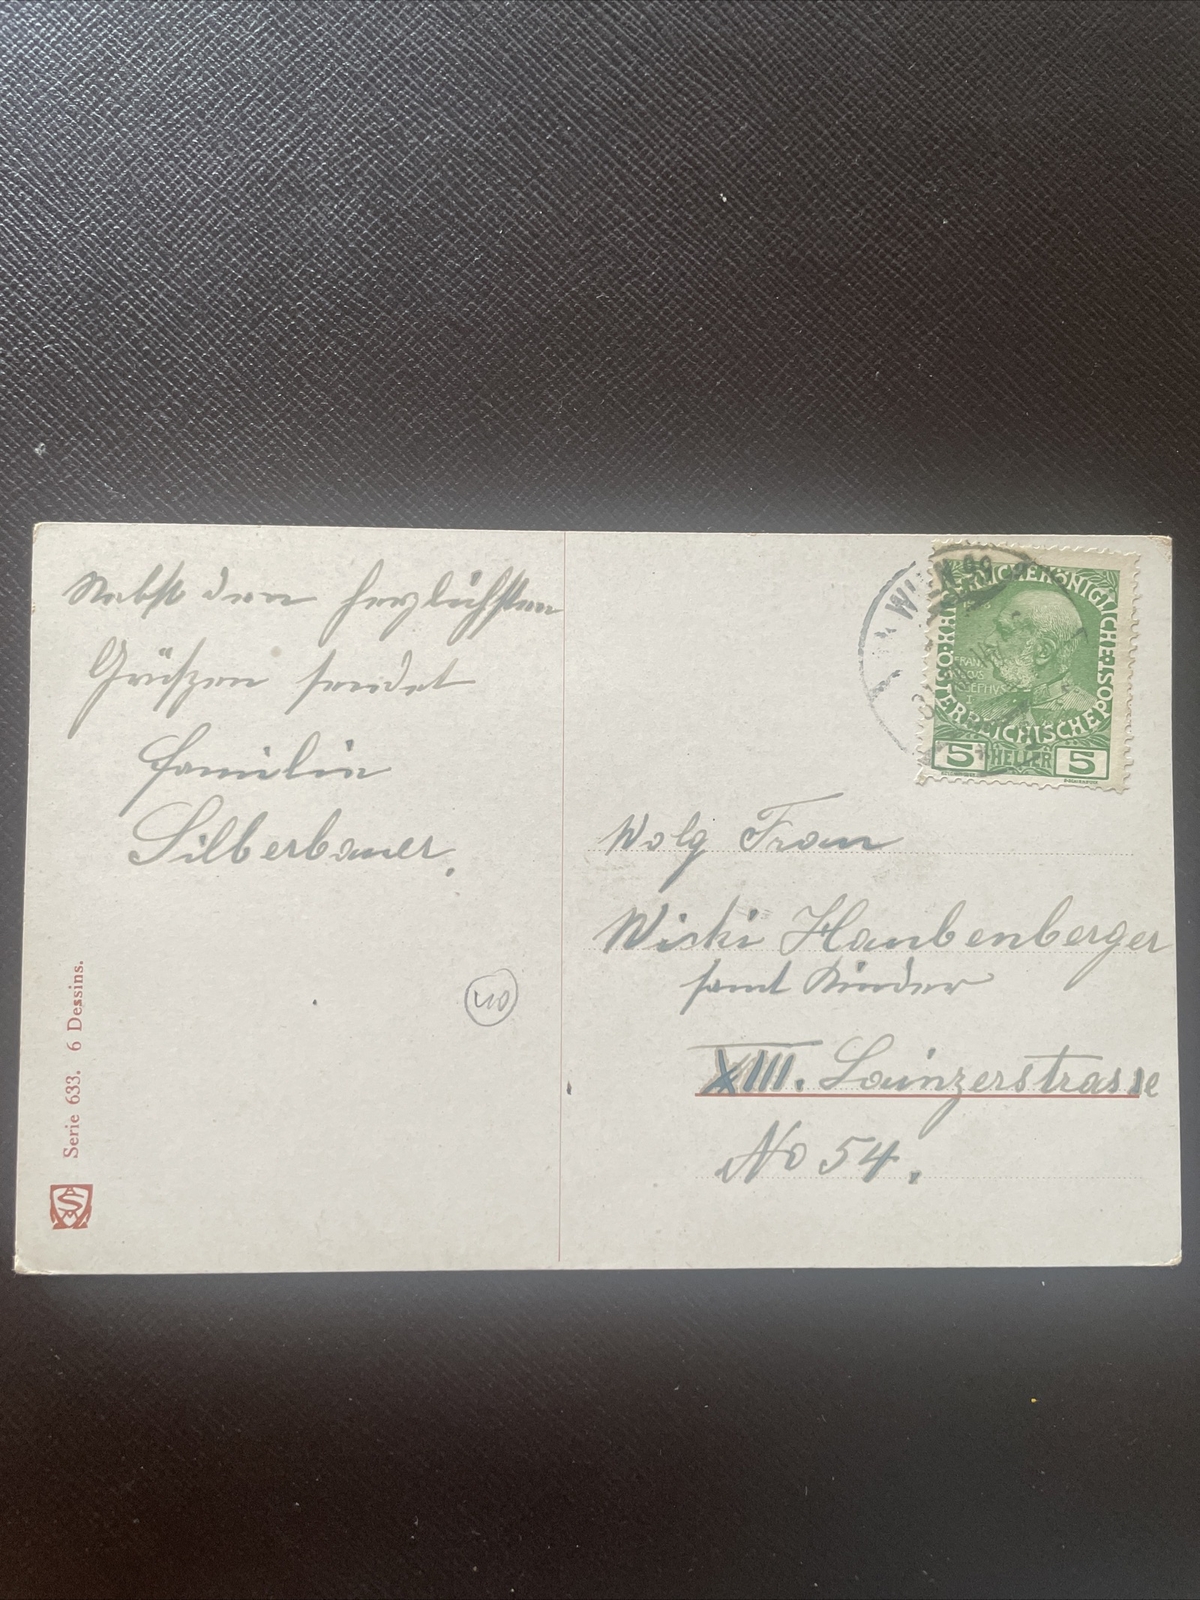 Nebst den herzlichsten
Grüßen sendet
Familie
Silberbauer.
Serie 633. 6 Dessins.
WIEN
FRANCISCVS
IOSEPHVS
I
KAISERLICHEKÖNIGLICHE
ÖSTERREICHISCHE POST
5 HELLER 5
Wolg Frau
Wicki Haubenberger
samt Kinder
XIII. Lainzerstrasse
No 54.